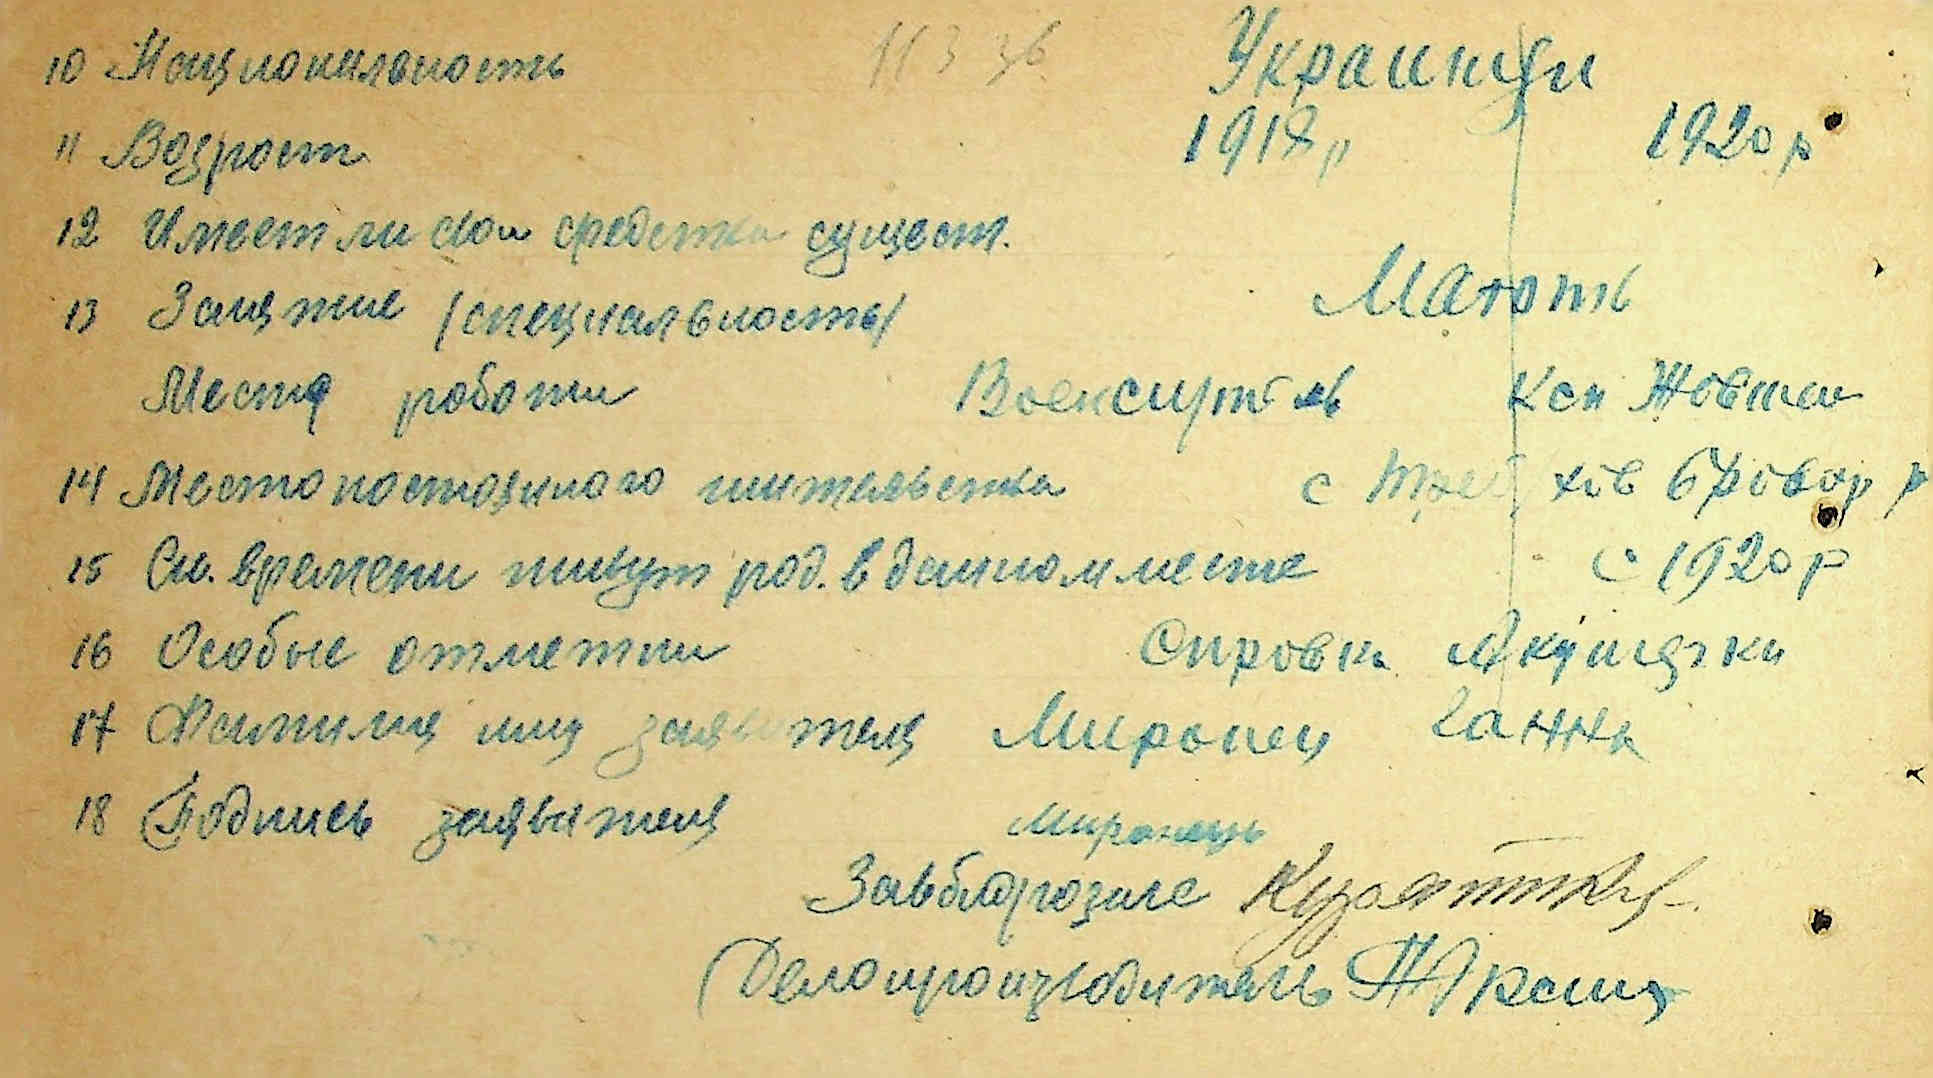 10 Национальность 113 зб Украинци
11 Возрост 1918 " 1920 р
12 Имеет ли свои средства сущест.
13 Занятие (специальность) Мають
Место роботи Ксп Жовтен
14 Место постоянного жительства с Треб хів Бровар р
15 Ск. времени живут род. в данном месте с 1920 р
16 Особые отметки Справка Акушэрки
17 Фамилия лиц заявителя Миронец Ганна
18 Подпись заявителя Миронець
Завбюрозагс
Делопроизводитель